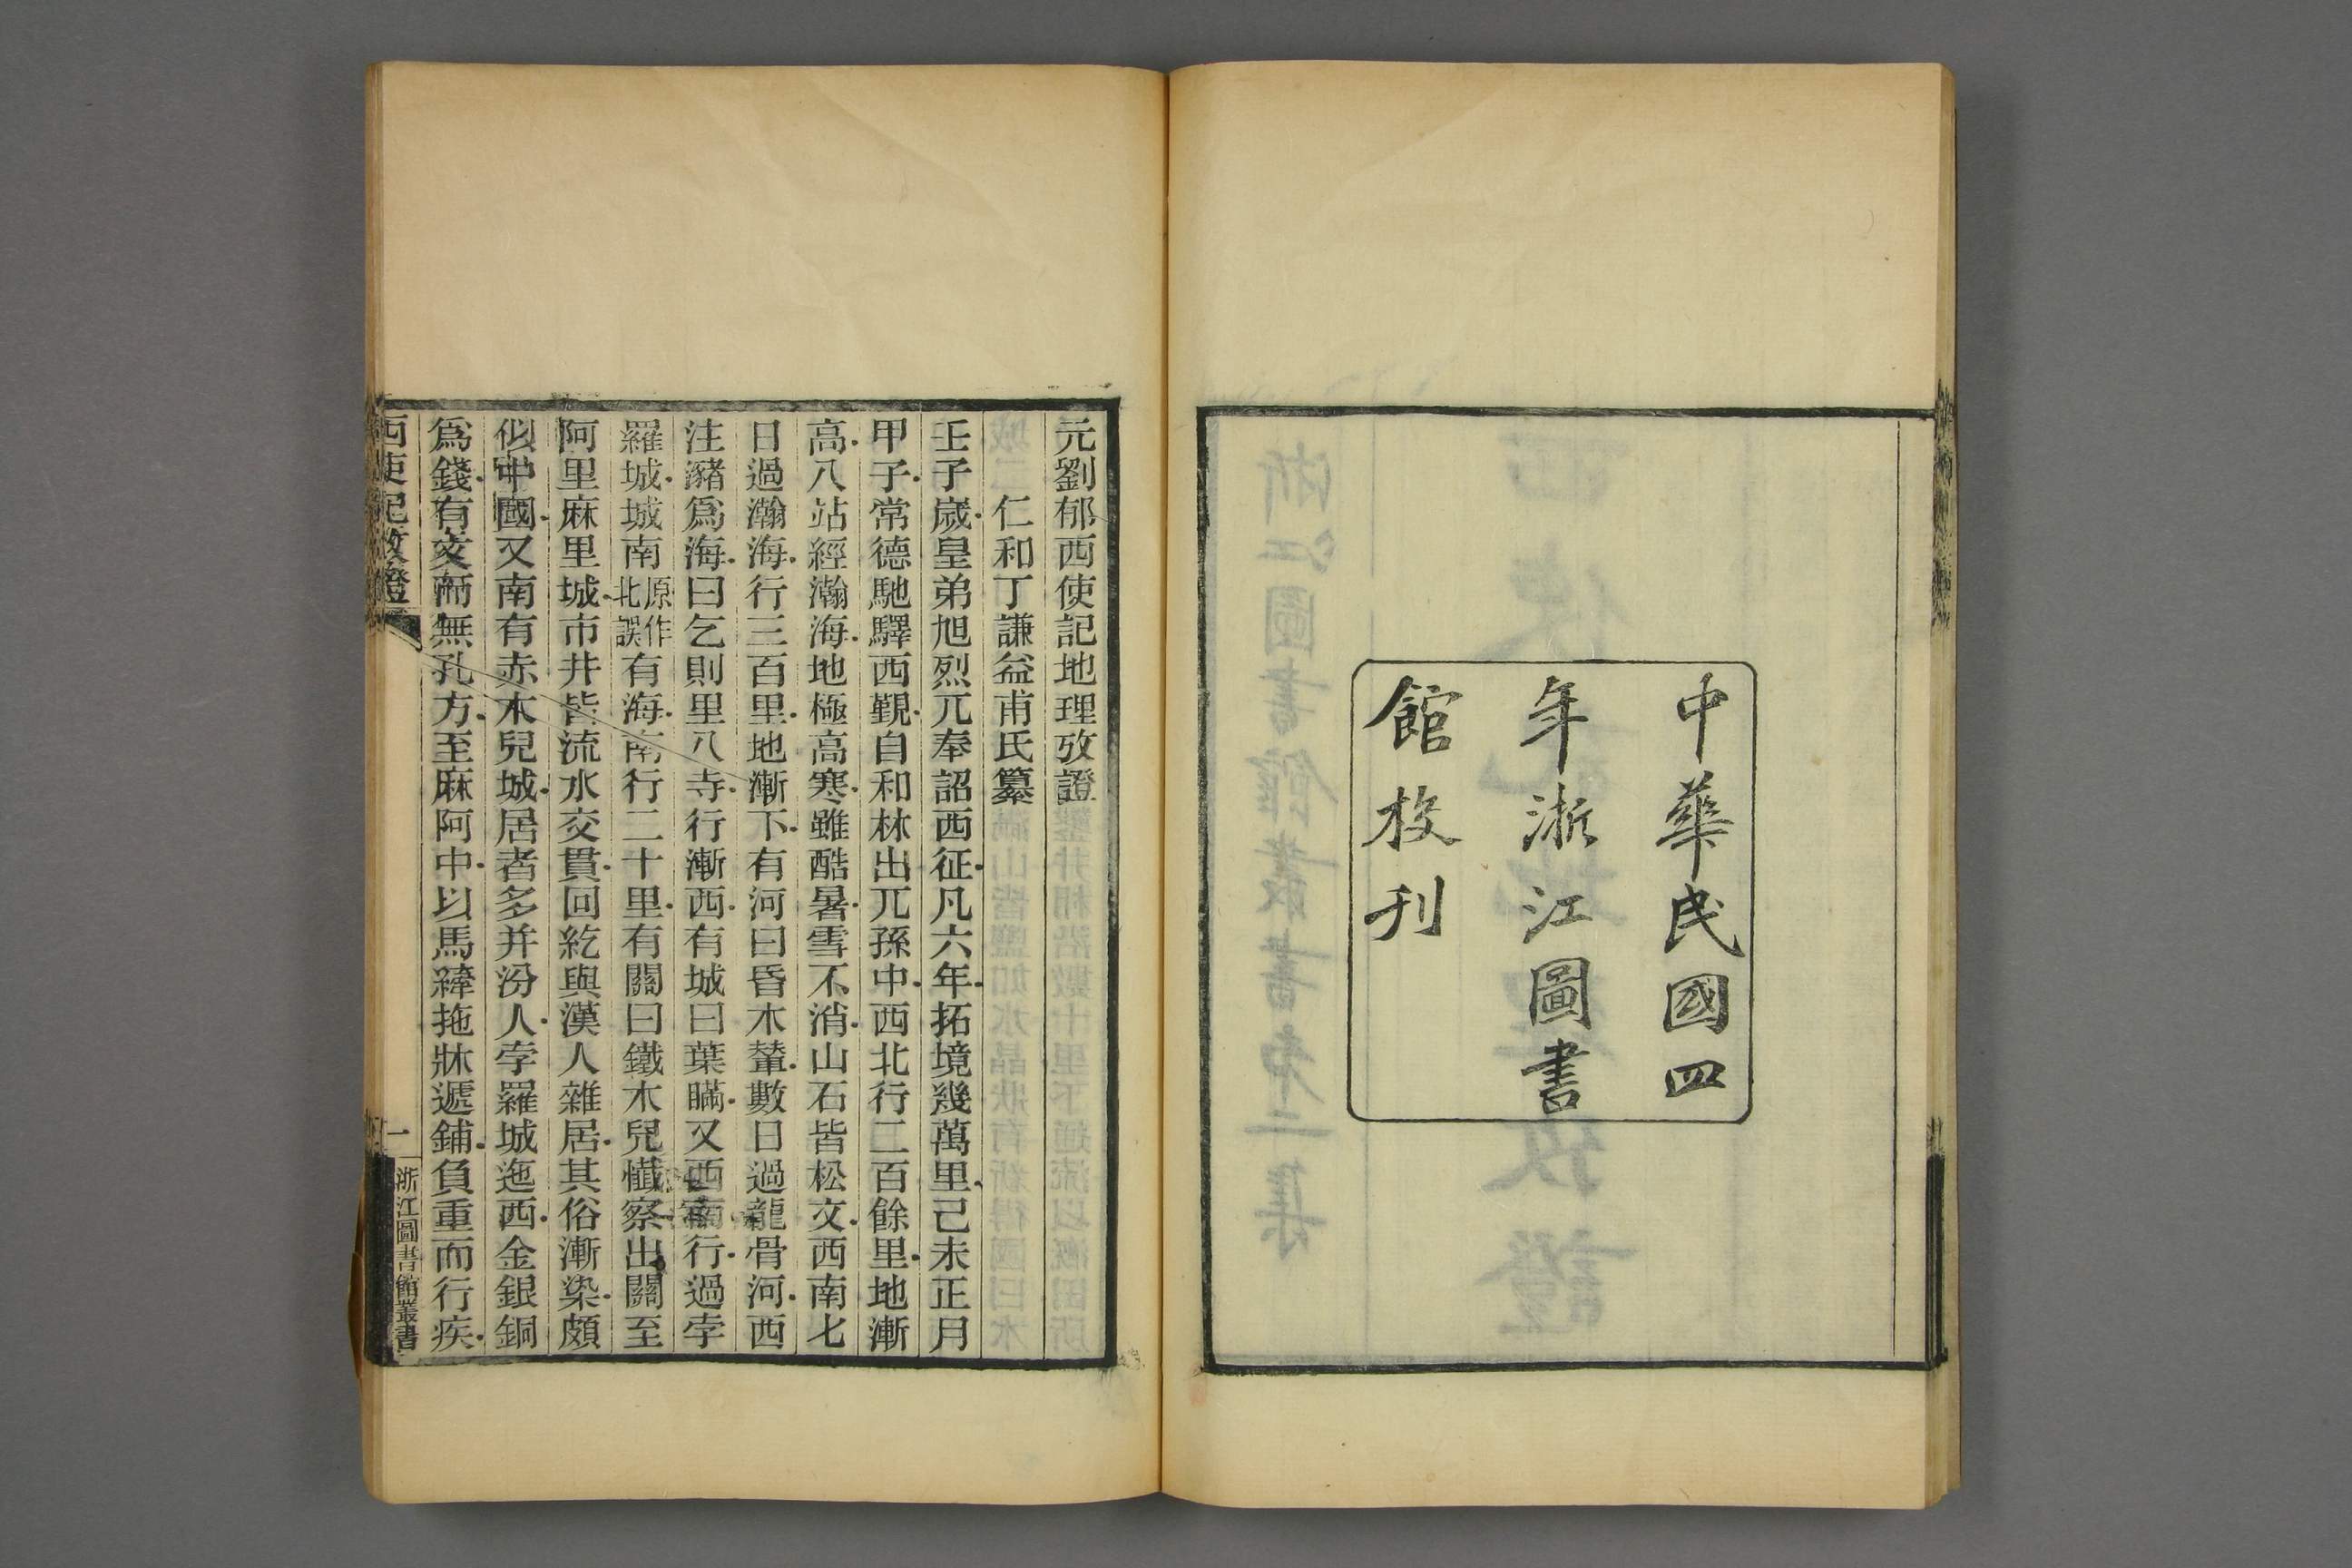 中華民國四
年浙江圖書
館校刊
元劉郁西使記地理攷證
仁和丁謙益甫氏纂
壬子歲皇弟旭烈兀奉詔西征凡六年拓境幾萬里己未正月
甲子常德馳驛西覲自和林出兀孫中西北行二百餘里地漸
高八站經瀚海地極高寒雖酷暑雪不消山石皆松文西南七
日過瀚海行三百里地漸下有河曰昏木輦數日過龍骨河西
注瀦爲海曰乞則里八寺行漸西有城曰葉瞞又西南行過孛
羅城城南原作北誤有海南行二十里有關曰鐵木兒懺察出關至
阿里麻里城市井皆流水交貫回紇與漢人雜居其俗漸染頗
似中國又南有赤木兒城居者多并汾人孛羅城迤西金銀銅
爲錢有文而無孔方至麻阿中以馬㸼拖牀遞鋪負重而行疾
西使記攷證
一
浙江圖書館叢書